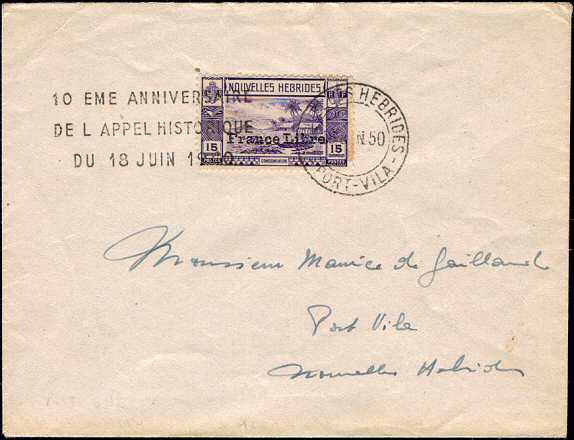 10 EME ANNIVERSAIRE
DE L APPEL HISTORIQUE
DU 18 JUIN 1940
NOUVELLES HEBRIDES
RF
France Libre
15 15
CONDOMINIUM
POSTES POSTES
HEBRIDES
N.50
PORT-VILA
Monsieur Maurice de Gaillande
Port Vila
Nouvelles Hebrides